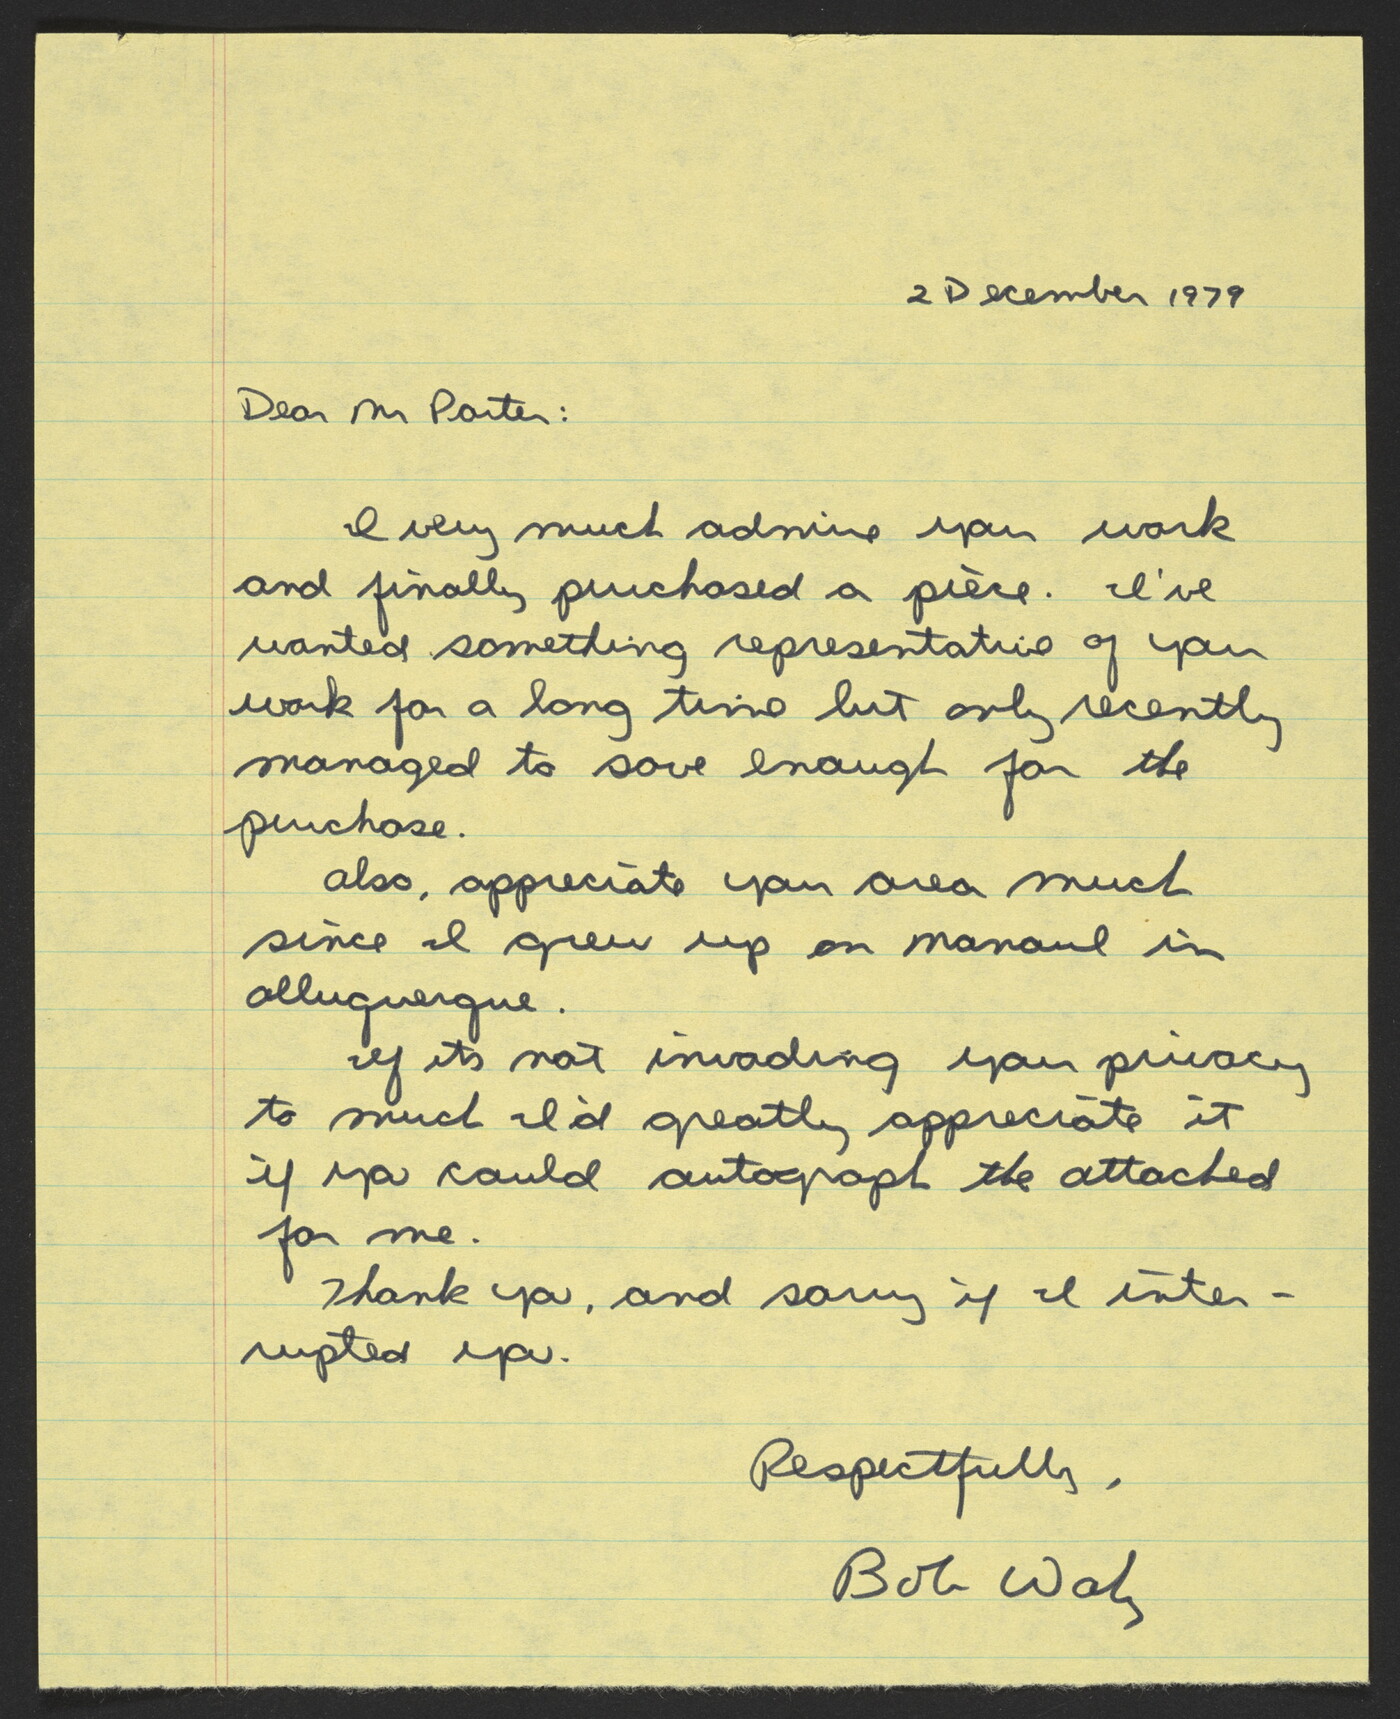 2 December 1979
Dear Mr Porter:
I very much admire your work
and finally purchased a piece. I've
wanted something representative of your
work for a long time but only recently
managed to save enough for the
purchase.
Also, appreciate your area much
since I grew up on Manaul in
Albuquerque.
If its not invading your privacy
to much I'd greatly appreciate it
if you could autograph the attached
for me.
Thank you, and sorry if I inter-
rupted you.
Respectfully,
Bob